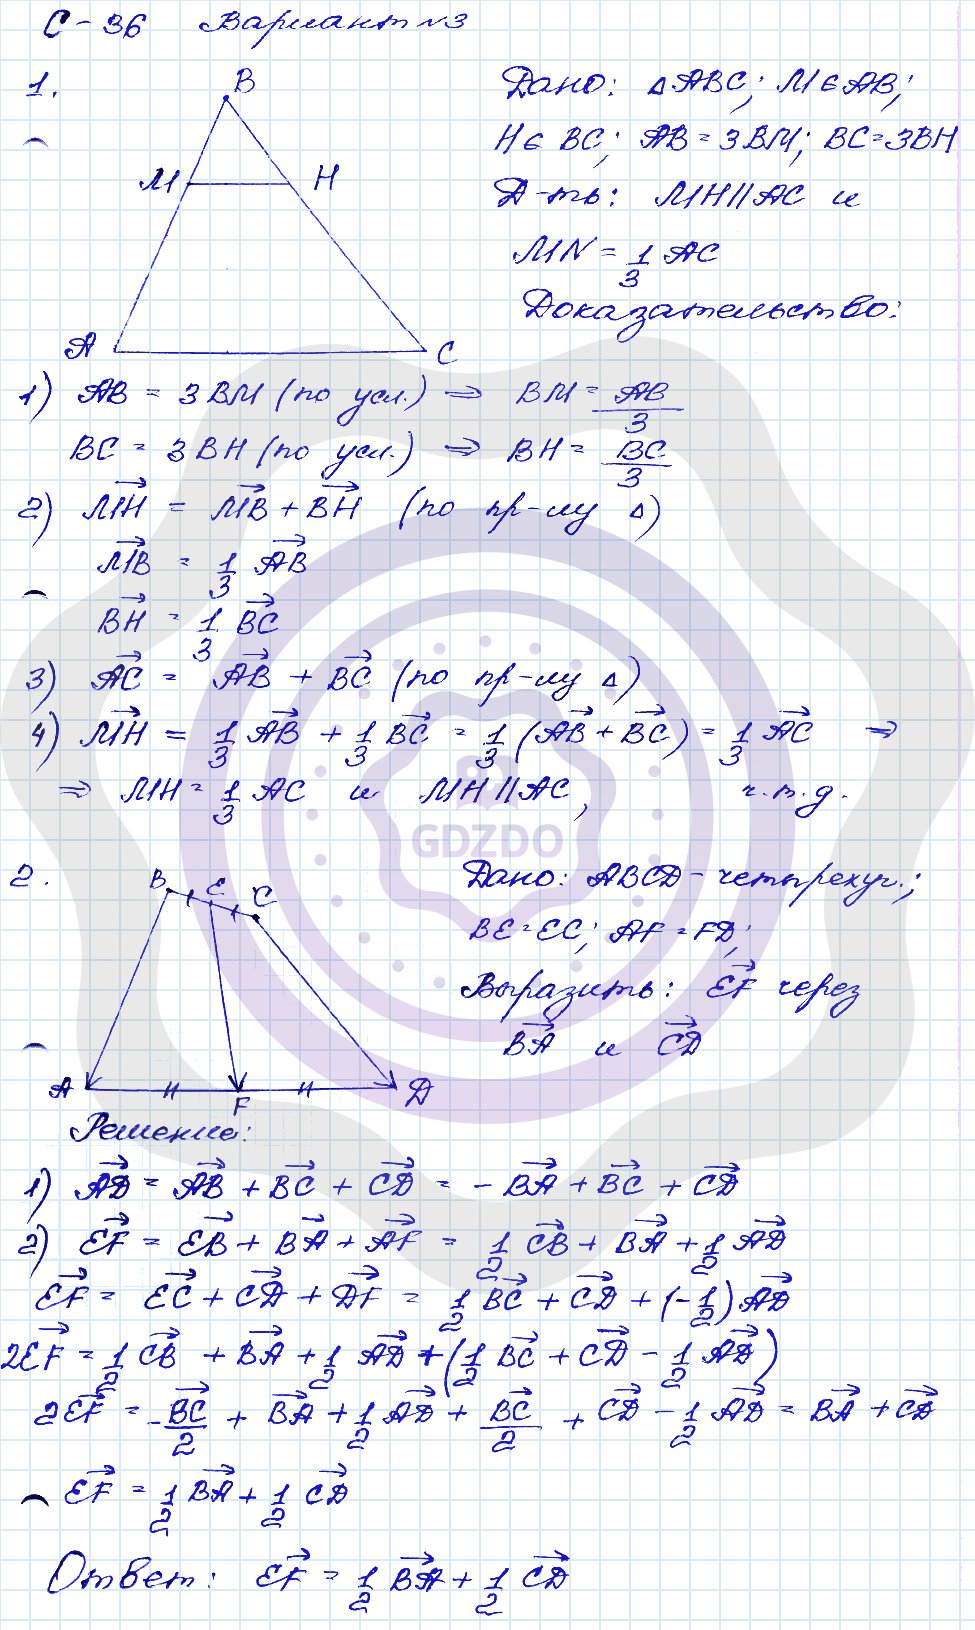 С-36 Вариант №3
1.
B
M
H
A
C
Дано: △ABC; M∈AB;
H∈BC; AB=3BM; BC=3BH
Д-ть: MH||AC и
MN = 1/3 AC
Доказательство:
1) AB = 3BM (по усл.) ⇒ BM = AB/3
BC = 3BH (по усл.) ⇒ BH = BC/3
2) MH⃗ = MB⃗ + BH⃗ (по пр-лу △)
MB⃗ = 1/3 AB⃗
BH⃗ = 1/3 BC⃗
3) AC⃗ = AB⃗ + BC⃗ (по пр-лу △)
4) MH⃗ = 1/3 AB⃗ + 1/3 BC⃗ = 1/3 (AB⃗ + BC⃗) = 1/3 AC⃗ ⇒
⇒ MH = 1/3 AC и MH||AC, ч.т.д.
GDZDO
2.
B
E
C
A
F
D
Дано: ABCD - четырехуг.;
BE=EC; AF=FD;
Выразить: EF⃗ через
BA⃗ и CD⃗
Решение:
1) AD⃗ = AB⃗ + BC⃗ + CD⃗ = -BA⃗ + BC⃗ + CD⃗
2) EF⃗ = EB⃗ + BA⃗ + AF⃗ = 1/2 CB⃗ + BA⃗ + 1/2 AD⃗
EF⃗ = EC⃗ + CD⃗ + DF⃗ = 1/2 BC⃗ + CD⃗ + (-1/2) AD⃗
2EF⃗ = 1/2 CB⃗ + BA⃗ + 1/2 AD⃗ + (1/2 BC⃗ + CD⃗ - 1/2 AD⃗)
2EF⃗ = -BC⃗/2 + BA⃗ + 1/2 AD⃗ + BC⃗/2 + CD⃗ - 1/2 AD⃗ = BA⃗ + CD⃗
EF⃗ = 1/2 BA⃗ + 1/2 CD⃗
Ответ: EF⃗ = 1/2 BA⃗ + 1/2 CD⃗